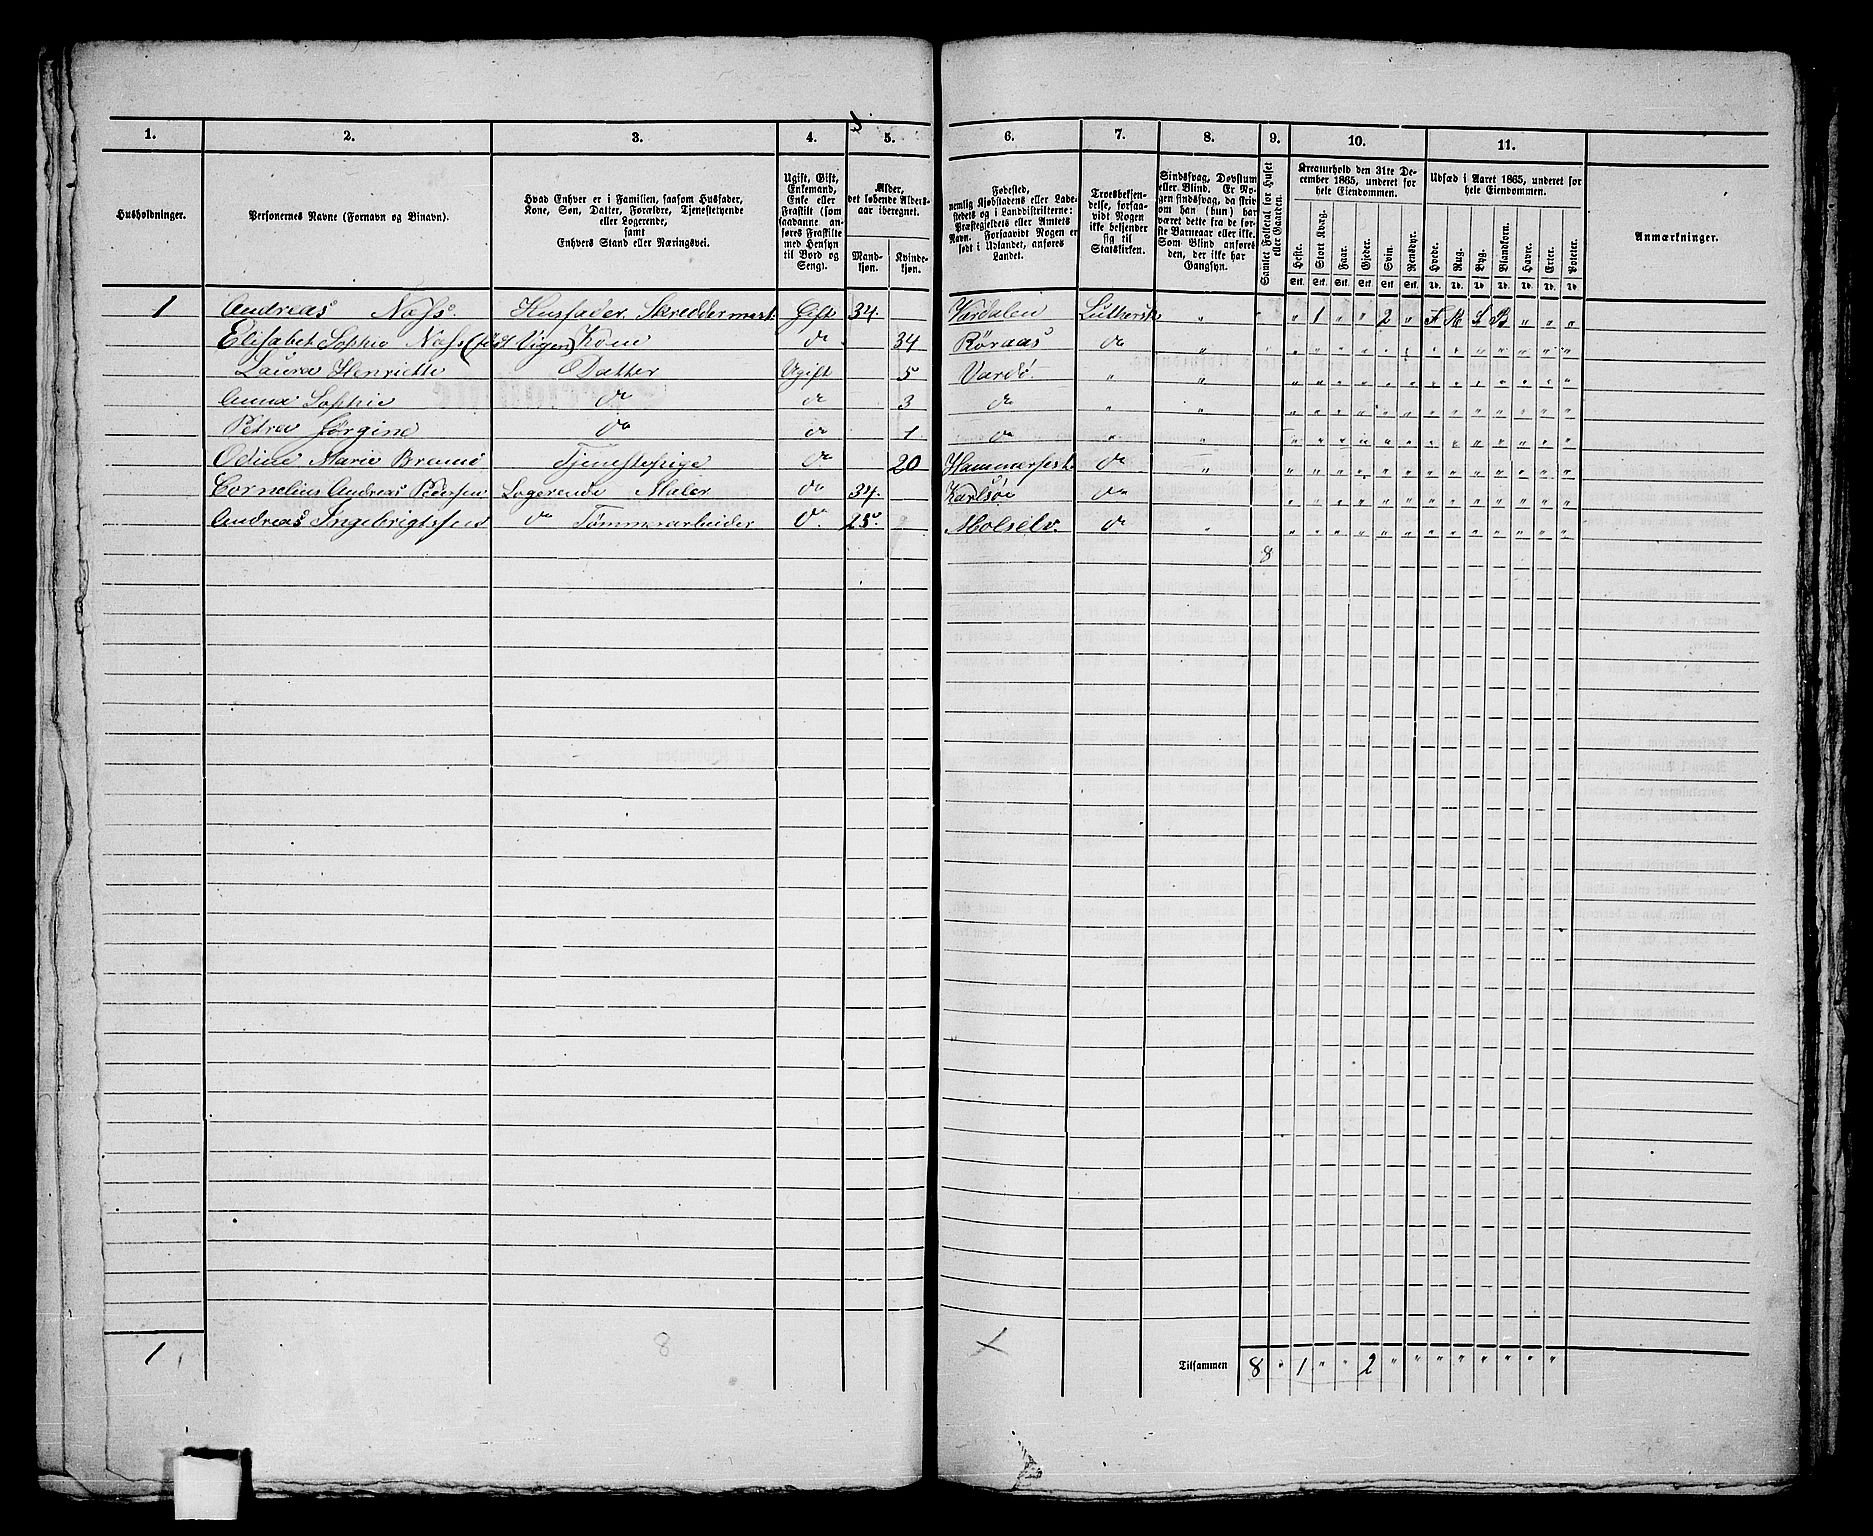 1. 2. 3. 4. 5. 6. 7. 8. 9. 10. 11.
Husholdninger.
Personernes Navne (Fornavn og Binavn).
Hvad Enhver er i Familien, saasom Husfader,
Kone, Søn, Datter, Forældre, Tjenestetyende
eller Logerende,
samt
Enhvers Stand eller Næringsvei.
Ugift, Gift,
Enkemand,
Enke eller
Fraskilt (som
saadanne an-
føres Fraskilte
med Hensyn
til Bord og
Seng).
Alder,
det løbende Alders-
aar iberegnet.
Mand-
kjøn.
Kvinde-
kjøn.
Fødested,
nemlig Kjøbstadens eller Lade-
stedets og i Landdistrikterne:
Præstegjeldets eller Amtets
Navn. Forsaavidt Nogen er
født i Udlandet, anføres
Landet.
Troesbekjen-
delse, forsaa-
vidt Nogen
ikke bekjender
sig til
Statskirken.
Sindssvag, Døvstum
eller Blind. Er No-
gen sindssvag, da skriv
om han (hun) har
været dette fra de for-
ste Barneaar eller ikke.
Som Blind anføres
den, der ikke har
Gangsyn.
Samlet Folketal for Huset
eller Gaarden.
Kreaturhold den 31te De-
cember 1865, underet for
hele Eiendommen.
Heste. Stort Kvæg. Faar. Gjeder. Svin. Rensdyr.
Stk. Stk. Stk. Stk. Stk. Stk.
Udsæd i Aaret 1865, underet for
hele Eiendommen.
Hvede. Rug. Byg. Blandkorn. Havre. Erter. Poteter.
Td. Td. Td. Td. Td. Td. Td.
Anmærkninger.
1 Andreas Næss. Husfader. Skreddermest. Gift 34. Værdalen Luthersk " " 1 " " 2 " " " "
Elisabet Sophie Næss (født Vigen) Kone do 34 Røraas do "
Laura Henriette Datter Ugift 5 Vardø. " "
Anna Sophie do do 3 do " "
Petra Jørgine do do 1 do " "
Odine Marie Tjenestepige do 20 Hammerfest. do "
Cornelius Andreas Pedersen Logerende Maler do 34. Karlsøe do
Andreas Ingebrigtssen do Tømmerarbeider do 25. Molselv. do "
8
1 8 Tilsammen 8 " 1 " " 2 " " " " " " " "